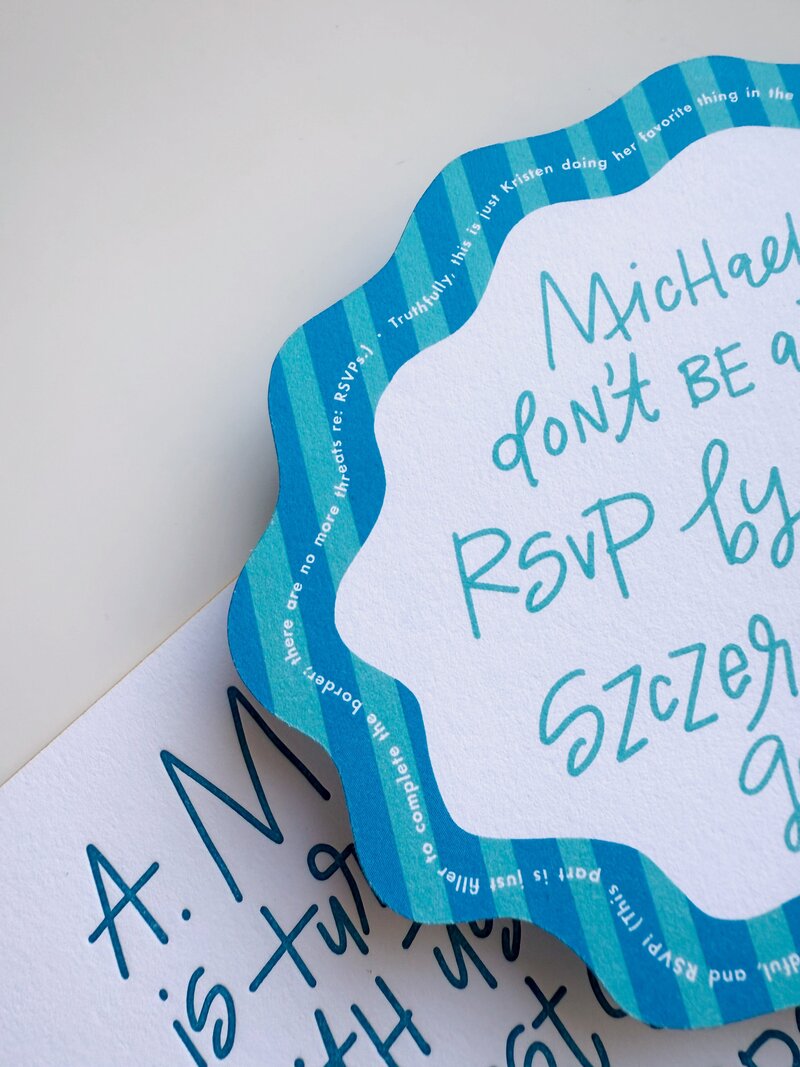 MicHael
don't BE a
RSVP by
Szczer
g
dful, and RSVP! (This part is just filler to complete the border; there are no more threats re: RSVPs.) · Truthfully, this is just Kristen doing her favorite thing in the
A. M
is tur
ith y
st